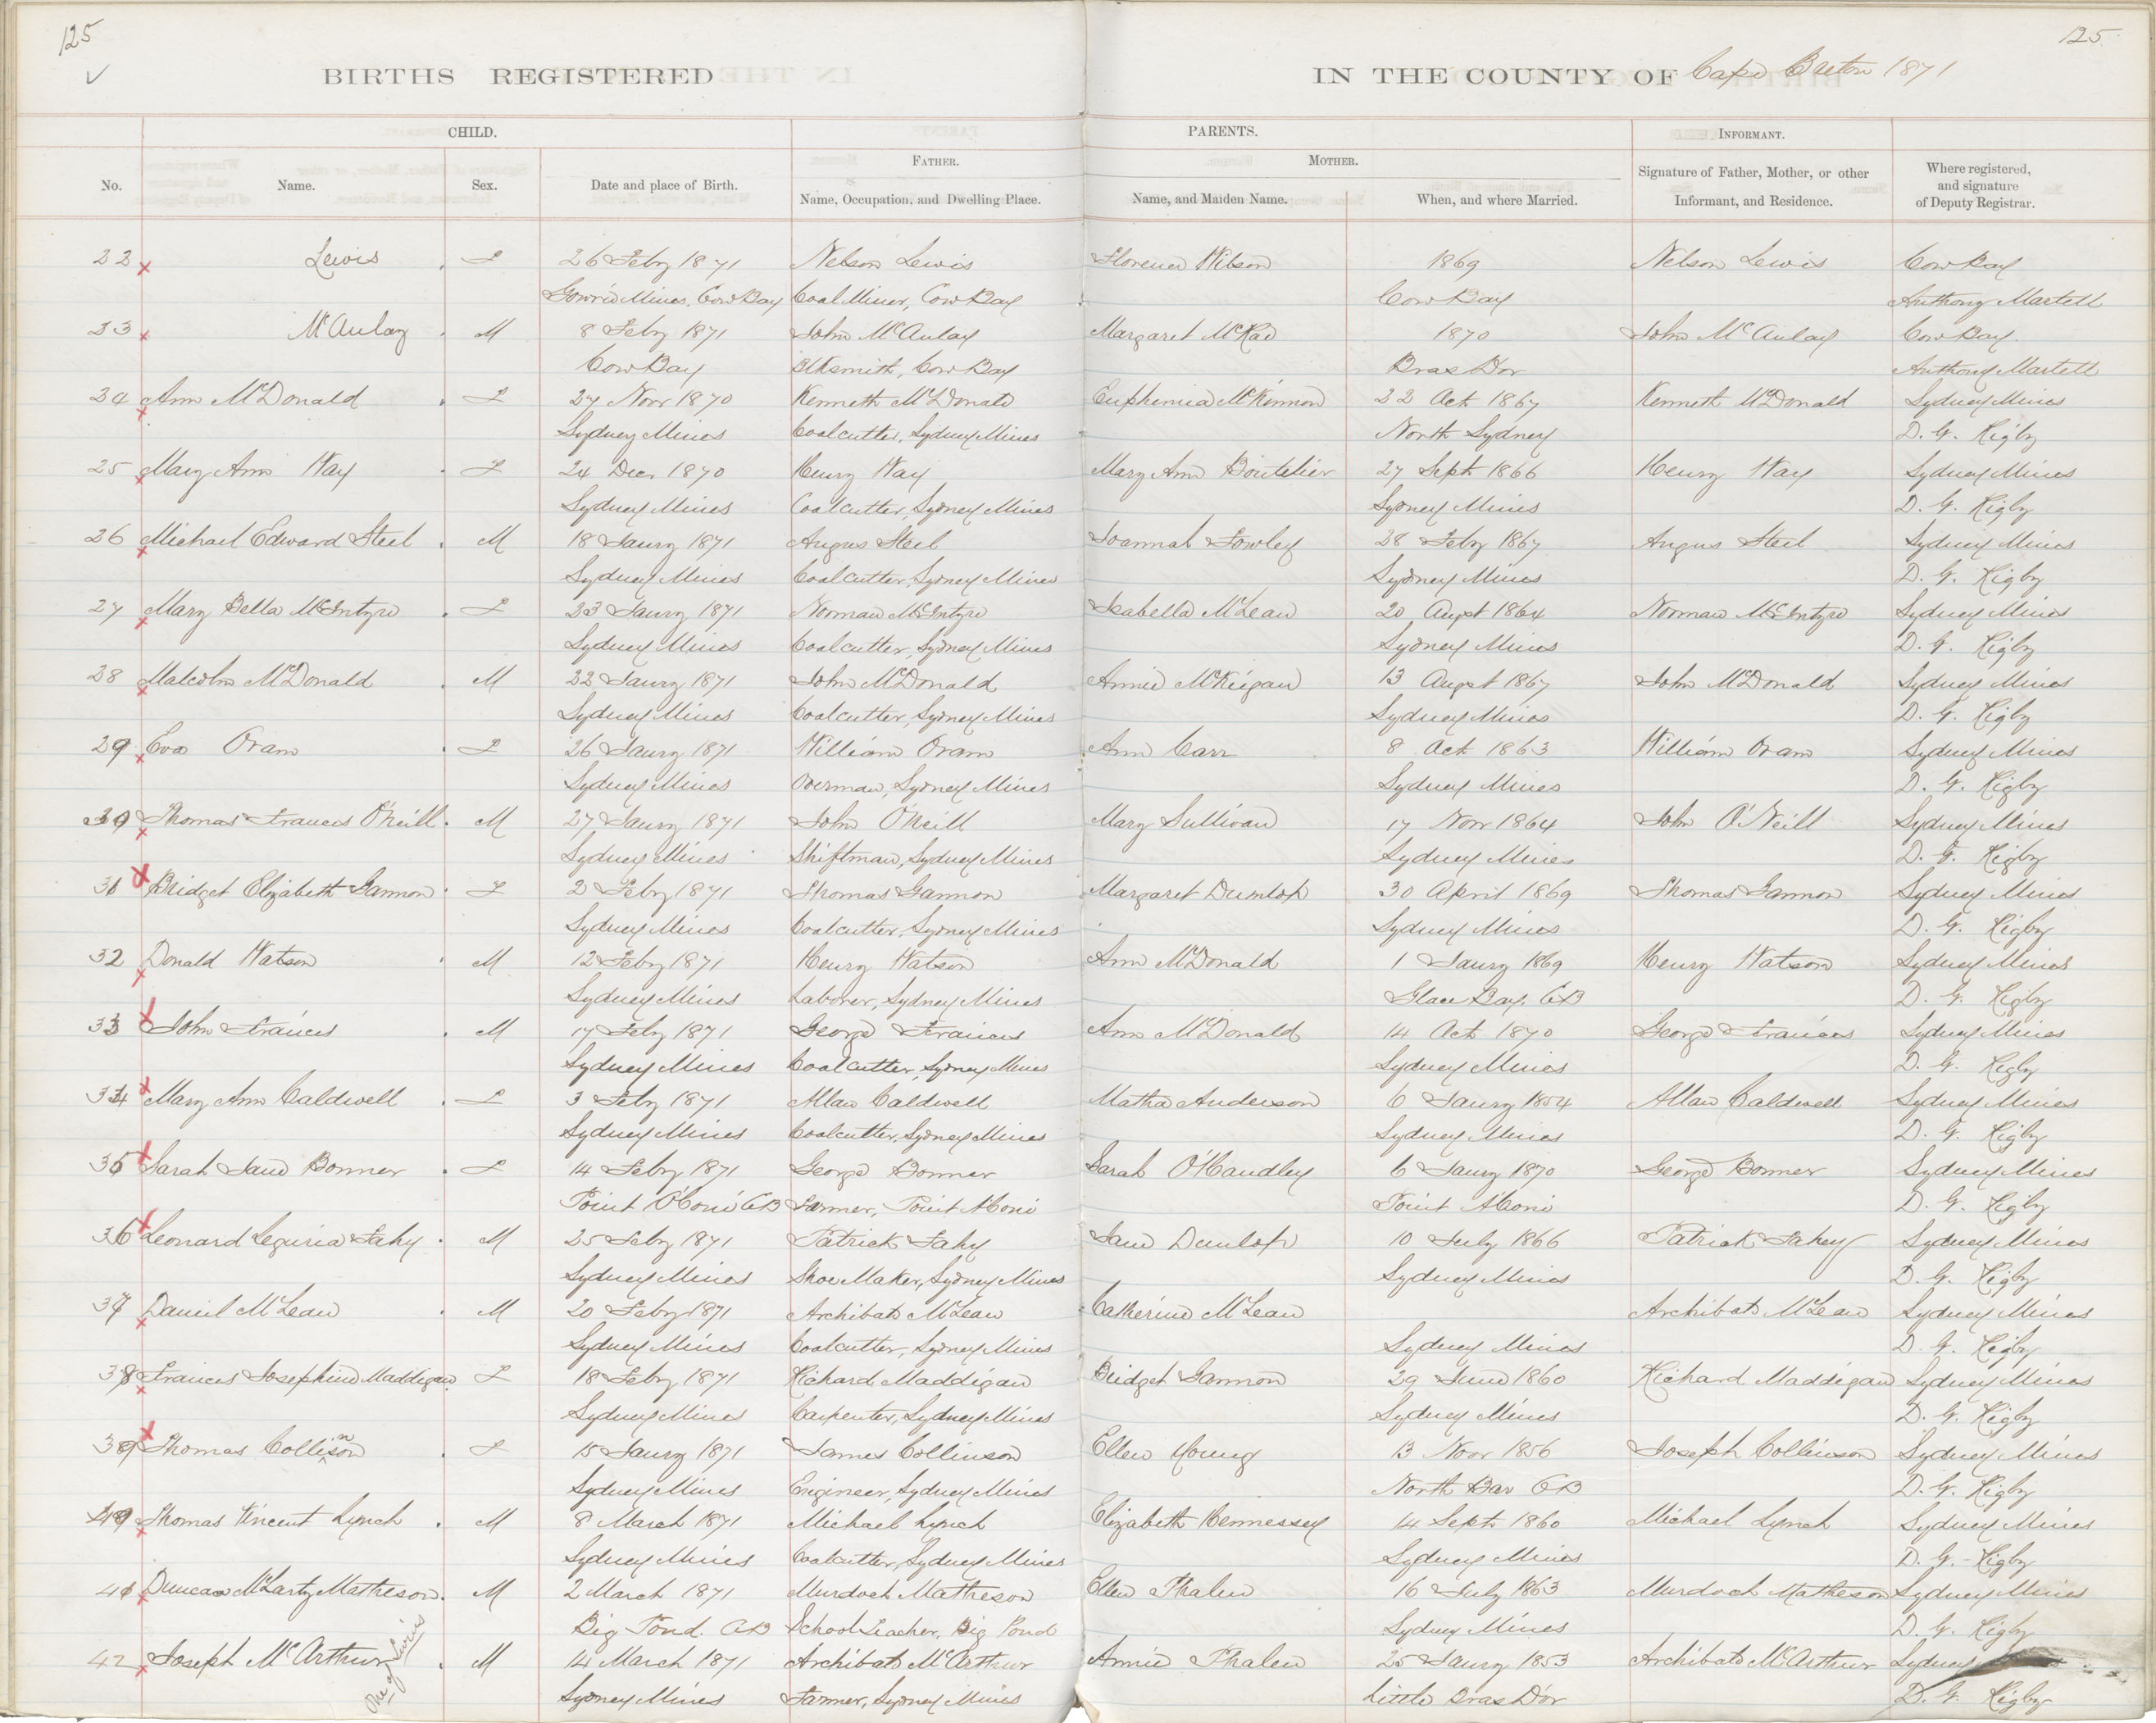 125 125
BIRTHS REGISTERED IN THE COUNTY OF Cape Breton 1871
CHILD. PARENTS. INFORMANT.
FATHER. MOTHER.
No. Name. Sex. Date and place of Birth. Name, Occupation, and Dwelling Place. Name, and Maiden Name. When, and where Married. Signature of Father, Mother, or other Informant, and Residence. Where registered, and signature of Deputy Registrar.
22 Lewis F 26 Feby 1871 Nelson Lewis Florence Wilson 1869 Nelson Lewis Cow Bay
Gowrie Mines, Cow Bay Coal Miner, Cow Bay Cow Bay Anthony Martell
23 McAulay M 8 Feby 1871 John McAulay Margaret McRae 1870 John McAulay Cow Bay
Cow Bay Blksmith, Cow Bay Bras Dor Anthony Martell
24 Ann McDonald F 27 Novr 1870 Kenneth McDonald Euphemia McKinnon 22 Oct 1867 Kenneth McDonald Sydney Mines
Sydney Mines Coalcutter, Sydney Mines North Sydney D. G. Rigby
25 Mary Ann Way F 24 Decr 1870 Henry Way Mary Ann Boutelier 27 Sept 1866 Henry Way Sydney Mines
Sydney Mines Coalcutter, Sydney Mines Sydney Mines D. G. Rigby
26 Michael Edward Steel M 18 Jaury 1871 Angus Steel Joannah Fowley 28 Feby 1867 Angus Steel Sydney Mines
Sydney Mines Coalcutter, Sydney Mines Sydney Mines D. G. Rigby
27 Mary Bella McIntyre F 23 Jaury 1871 Norman McIntyre Isabella McLean 20 Augst 1864 Norman McIntyre Sydney Mines
Sydney Mines Coalcutter, Sydney Mines Sydney Mines D. G. Rigby
28 Malcolm McDonald M 22 Jaury 1871 John McDonald Annie McKeigan 13 Augst 1867 John McDonald Sydney Mines
Sydney Mines Coalcutter, Sydney Mines Sydney Mines D. G. Rigby
29 Eva Oram F 26 Jaury 1871 William Oram Ann Carr 8 Oct 1863 William Oram Sydney Mines
Sydney Mines Overman, Sydney Mines Sydney Mines D. G. Rigby
30 Thomas Francis O'Neill M 27 Jaury 1871 John O'Neill Mary Sullivan 17 Novr 1864 John O'Neill Sydney Mines
Sydney Mines Shiftman, Sydney Mines Sydney Mines D. G. Rigby
31 Bridget Elizabeth Gannon F 2 Feby 1871 Thomas Gannon Margaret Dunlop 30 April 1869 Thomas Gannon Sydney Mines
Sydney Mines Coalcutter, Sydney Mines Sydney Mines D. G. Rigby
32 Donald Watson M 12 Feby 1871 Henry Watson Ann McDonald 1 Jaury 1869 Henry Watson Sydney Mines
Sydney Mines Laborer, Sydney Mines Glace Bay, CB D. G. Rigby
33 John Francis M 17 Feby 1871 George Francis Ann McDonald 14 Oct 1870 George Francis Sydney Mines
Sydney Mines Coalcutter, Sydney Mines Sydney Mines D. G. Rigby
34 Mary Ann Caldwell F 3 Feby 1871 Allan Caldwell Matha Anderson 6 Jaury 1854 Allan Caldwell Sydney Mines
Sydney Mines Coalcutter, Sydney Mines Sydney Mines D. G. Rigby
35 Sarah Jane Bonner F 14 Feby 1871 George Bonner Sarah O'Handley 6 Jaury 1870 George Bonner Sydney Mines
Point A'Coni CB Farmer, Point A'Coni Point A'Coni D. G. Rigby
36 Leonard Leguria Fahy M 25 Feby 1871 Patrick Fahy Jane Dunlop 10 July 1866 Patrick Fahey Sydney Mines
Sydney Mines Shoe Maker, Sydney Mines Sydney Mines D. G. Rigby
37 Daniel McLean M 20 Feby 1871 Archibald McLean Catherine McLean Archibald McLean Sydney Mines
Sydney Mines Coalcutter, Sydney Mines Sydney Mines D. G. Rigby
38 Frances Josephine Maddigan F 18 Feby 1871 Richard Maddigan Bridget Gannon 29 June 1860 Richard Maddigan Sydney Mines
Sydney Mines Carpenter, Sydney Mines Sydney Mines D. G. Rigby
39 Thomas Collinson F 15 Jaury 1871 James Collinson Ellen Young 13 Novr 1856 Joseph Collinson Sydney Mines
Sydney Mines Engineer, Sydney Mines North Bar CB D. G. Rigby
40 Thomas Vincent Lynch M 8 March 1871 Michael Lynch Elizabeth Hennessey 14 Sept 1860 Michael Lynch Sydney Mines
Sydney Mines Coalcutter, Sydney Mines Sydney Mines D. G. Rigby
41 Duncan McLarty Matheson M 2 March 1871 Murdoch Matheson Ellen Phalen 16 July 1863 Murdoch Matheson Sydney Mines
Big Pond. CB School Teacher, Big Pond Sydney Mines D. G. Rigby
42 Joseph McArthur One of Twins M 14 March 1871 Archibald McArthur Annie Phalen 25 Jaury 1853 Archibald McArthur Sydney
Sydney Mines Farmer, Sydney Mines Little Bras D'or D. G. Rigby